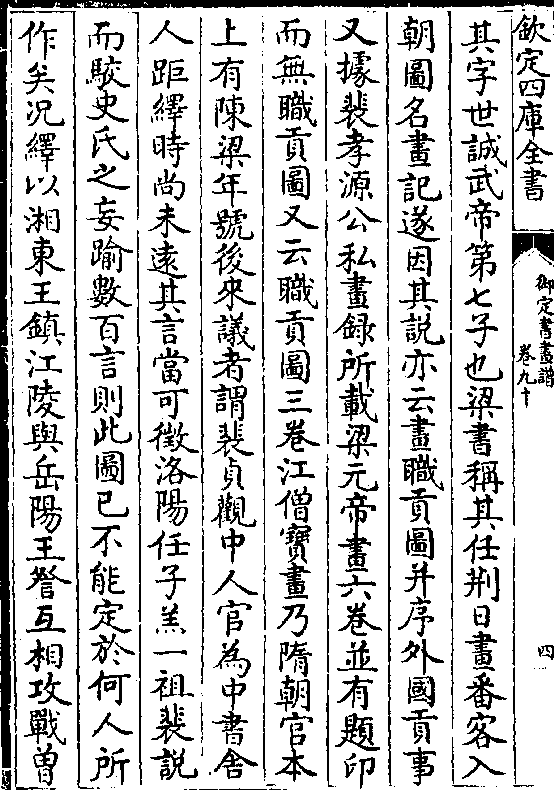 欽定四庫全書
御定書畫譜
卷九十
四
其字世誠武帝第七子也梁書稱其任荆日畫番客入
朝圖名畫記遂因其説亦云畫職貢圖并序外國貢事
又據裴孝源公私畫録所載梁元帝畫六卷並有題印
而無職貢圖又云職貢圖三卷江僧寶畫乃隋朝官本
上有陳梁年號後來議者謂裴貞觀中人官為中書舍
人距繹時尚未遠其言當可徵洛陽任子羔一祖裴説
而駮史氏之妄踰數百言則此圖已不能定於何人所
作矣况繹以湘東王鎮江陵與岳陽王詧互相攻戰曽